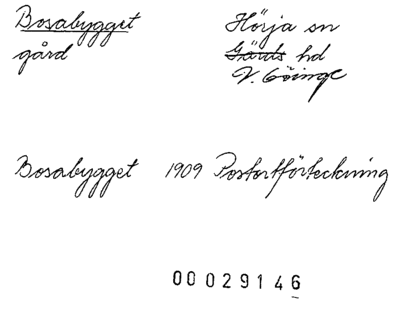 Bosabygget
gård
Hörja sn
Gärds hd
V. Göinge
Bosabygget 1909 Postortförteckning
00 029146